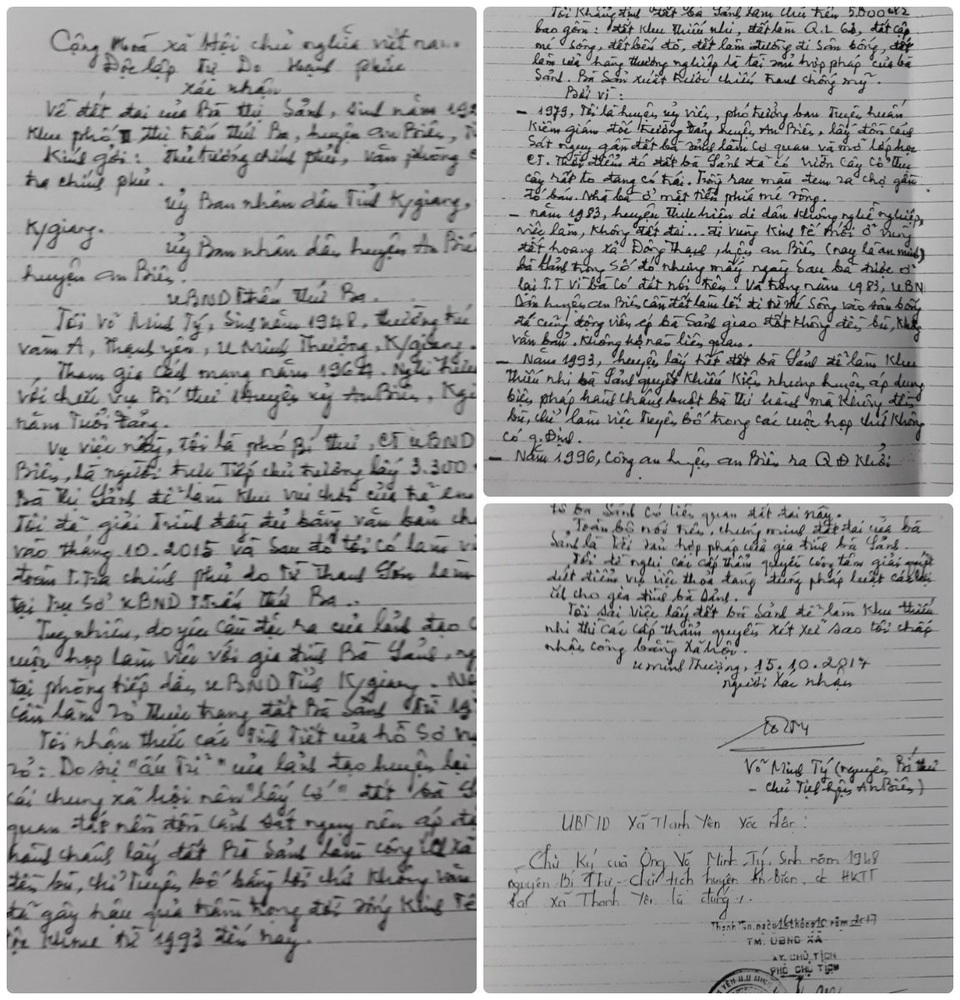 Cộng Hoà xã Hội chủ nghĩa việt nam.
Độc lập Tự Do Hạnh phúc
xác nhận
Về đất đai của Bà thị Sảnh, sinh năm 192
Khu phố II thị trấn thứ Ba, huyện An Biên, T
Kính gởi: thủ tướng chính phủ, văn phòng c
tra chính phủ.
ủy Ban nhân dân Tỉnh K/giang,
K/giang.
ủy Ban nhân dân huyện An Biê
huyện An Biên.
UBND T.trấn thứ Ba.
Tôi Võ Minh Tý, Sinh năm 1948, thường trú
vàm A, Thạnh yên, U Minh Thượng, K/giang.
Tham gia cách mạng năm 1964. Nghỉ hưu
với chức vụ Bí thư Huyện uỷ An Biên, Kgi
năm Tuổi Đảng.
Vụ việc này, tôi là phó Bí thư, CT UBND
Biên, là người trực tiếp chủ trương lấy 3.300
Bà Thị Sảnh để làm khu vui chơi của trẻ em
Tôi đã giải trình đầy đủ bằng văn bản ch
vào tháng 10.2015 và sau đó tôi có làm vi
đoàn T.Tra chính phủ do Tô Thanh Sơn làm
tại trụ sở UBND T.trấn thứ Ba.
Tuy nhiên, do yêu cầu đặt ra của lãnh đạo
cuộc họp làm việc với gia đình Bà Sảnh, ng
tại phòng tiếp dân UBND Tỉnh K/giang. Nê
cần làm rõ thực trạng đất Bà Sảnh từ 19
Tôi nhận thức các tình tiết của hồ sơ vụ
rõ: Do sự "ấu trĩ" của lãnh đạo huyện lại
cái chung xã hội nên "lấy cớ" đất bà S
quan đất nên đồn cảnh sát ngụy nên áp d
hành chánh lấy đất Bà Sảnh làm công ích xã
đền bù, chỉ tuyên bố bằng lời chứ không văn
đã gây hậu quả trầm trọng đời sống Kinh Tế
từ 1993 đến nay.
Tôi khẳng định đất bà Sảnh làm chủ trên 5.000 m2
bao gồm: đất khu thiếu nhi, đất làm Q.L 63, đất cặp
mé sông, đất bến đò, đất làm đường đi sân bóng, đất
làm cửa hàng thương nghiệp là tài sản hợp pháp của bà
Sảnh. Bà sản xuất trước chiến tranh chống mỹ.
Bởi vì:
- 1979, Tôi là huyện ủy viên, phó trưởng ban Tuyên huấn
kiêm giám đốc trường đảng huyện An Biên, lấy đồn cảnh
sát ngụy gần đất bà Sảnh làm cơ quan và mở lớp học
CT. Thời điểm đó đất bà Sảnh đã có vườn cây cổ thụ
cây rất to đang có trái. Trồng rau màu đem ra chợ gần
đó bán. Nhà bà ở mặt tiền phía mé sông.
- năm 1983, huyện thực hiện di dân không nghề nghiệp,
việc làm, không đất đai... đi vùng Kinh tế mới ở vùng
đất hoang xã Đông Thạnh, huyện an Biên (nay là an minh)
bà Sảnh trong số đó nhưng mấy ngày sau bà được ở
lại T.T vì bà có đất nói trên. Và trong năm 1983, UBN
Dân huyện an Biên cần đất làm lối đi từ mé sông vào sân bóng
đã cùng động viên ép bà Sảnh giao đất không đền bù, không
văn bản, không hộ nào liên quan.
- Năm 1993, huyện lấy hết đất bà Sảnh để làm khu
Thiếu nhi bà Sảnh quyết khiếu kiện nhưng huyện áp dụng
biện pháp hành chánh buộc bà thi hành mà không đền
bù, chỉ làm việc tuyên bố trong các cuộc họp chứ không
có q.định.
- Năm 1996, Công an huyện an Biên ra QĐ khởi
tố bà Sảnh có liên quan đất đai này.
Toàn bộ nói trên, chứng minh đất đai của bà
Sảnh là tài sản hợp pháp của gia đình bà Sảnh.
Tôi đề nghị các cấp thẩm quyền công tâm giải quyết
dứt điểm vụ việc thoả đáng đúng pháp luật có lợi
ích cho gia đình bà Sảnh.
Tôi sai việc lấy đất bà Sảnh để làm khu thiếu
nhi thì các cấp thẩm quyền xét xử sao tôi chấp
nhận công bằng xã hội.
U minh Thượng, 15.10.2017
người xác nhận
Võ Minh Tý (nguyên Bí thư
- Chủ Tịch huyện An Biên)
UBND Xã Thạnh Yên Xác nhận:
Chữ ký của Ông Võ Minh Tý, Sinh năm 1948
nguyên Bí Thư - Chủ tịch huyện An Biên, có HKTT
tại xã Thạnh Yên là đúng./.
Thạnh Yên, ngày 16 tháng 10 năm 2017
TM. UBND XÃ
KT. CHỦ TỊCH
PHÓ CHỦ TỊCH